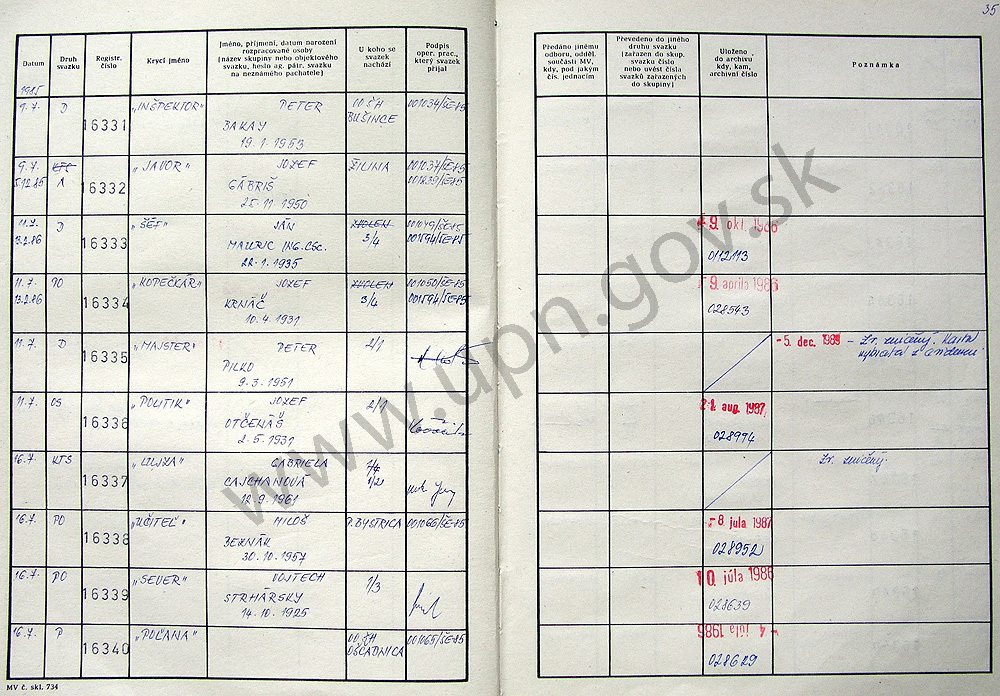 35
Datum
Druh svazku
Registr. číslo
Krycí jméno
Jméno, příjmení, datum narození rozpracované osoby (název skupiny nebo objektového svazku, heslo ag. pátr. svazku na neznámého pachatele)
U koho se svazek nachází
Podpis oper. prac., který svazek přijal
Předáno jinému odboru, odděl. součásti MV, kdy, pod jakým čís. jednacím
Převedeno do jiného druhu svazku (zařazen do skup. svazku číslo nebo uvést čísla svazků zařazených do skupiny)
Uloženo do archivu kdy, kam, archivní číslo
Poznámka
1985
9.7. D 16331 „INŠPEKTOR" PETER OO ŠH 001034/ŠE-85
BAKAY BUŠINCE
19.1.1953
9.7. 16332 „JAVOR" JOZEF ŽILINA 001037/ŠE-85
5.12.85 A GÁBRIŠ 001839/ŠE-85
25.11.1950
11.7. D 16333 „ŠÉF" JÁN ZVOLEN 001049/ŠE-85 9. okt. 1986
13.2.86 MAURIC ING. CSC. 3/4 001594/ŠE-85 0112113
22.1.1935
11.7. PO 16334 „KOPEČKÁR" JOZEF ZVOLEN 001050/ŠE-85 9. apríla 1986
13.2.86 KRNÁČ 3/4 001594/ŠE-85 028543
10.4.1931
11.7. D 16335 „MAJSTER" PETER 2/1 -5. dec. 1989 – Zv. zničený.
PILKO
9.3.1951
11.7. OS 16336 „POLITIK" JOZEF 2/1 21. aug. 1987
OTČENÁŠ 028974
2.5.1931
16.7. KTS 16337 GABRIELA Zv. zničený.
CAJCHANOVÁ 1/2
12.9.1961
16.7. PO 16338 „UČITEĽ" MILOŠ P. BYSTRICA 001066/ŠE-85 -8 júla 1987
BEKNÁK 028952
30.10.1957
16.7. PO 16339 „SEVER" VOJTECH 1/3 10 júla 1986
STRHÁRSKY 028639
14.10.1925
16.7. P 16340 „POĽANA" OO ŠH 001065/ŠE-85 -4 júla 1986
OŠČADNICA 028629
MV č. skl. 734
www.upn.gov.sk